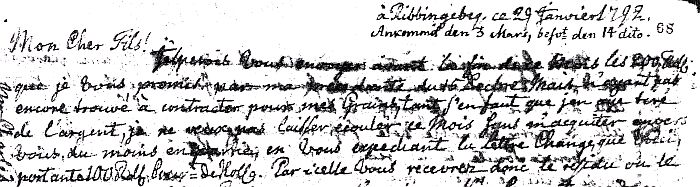 à Ribbingebeg. ce 29 Janvier 1792.
Ankommit den 3 Mars, besv. den 14 dito. 68
Mon Cher Fils!
J'esperois Vous envoyer avant la fin de ce Mois les 200
que je Vous promis par ma du 15 Mais, n'ayant pas
encore trouvé à contracter pour mes Grains, tant s'en faut que j'en aye tiré
de l'argent, je ne veux pas laisser écouler ce Mois sans m'acquitter envers
vous, du moins en partie, en Vous expediant la Lettre Change, que voici,
portante 100 Par icelle Vous recevrez donc le ou le